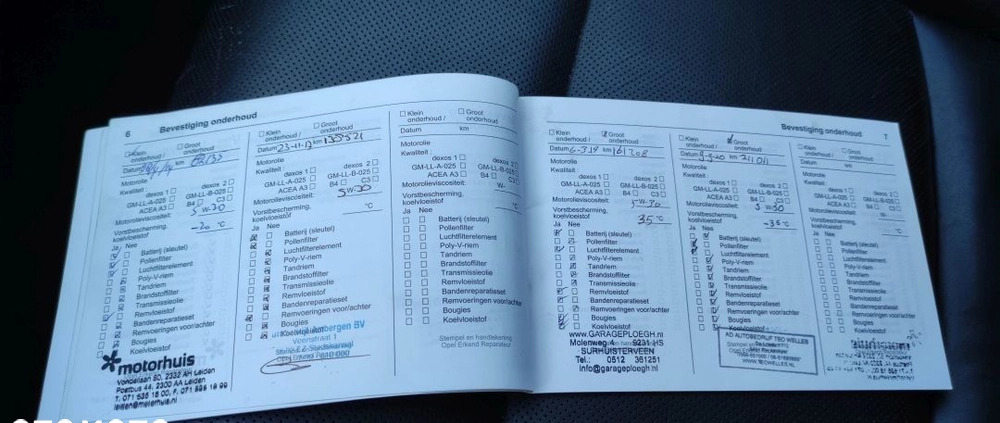 6 Bevestiging onderhoud
Klein onderhoud / Groot onderhoud
Datum km
Motorolie
Kwaliteit:
dexos 1 dexos 2
GM-LL-A-025 GM-LL-B-025
ACEA A3 B4 C3
Motorolieviscositeit: 5 W-30
Vorstbescherming, koelvloeistof -20 °C
Ja Nee
Batterij (sleutel)
Pollenfilter
Luchtfilterelement
Poly-V-riem
Tandriem
Brandstoffilter
Transmissieolie
Remvloeistof
Bandenreparatieset
Remvoeringen voor/achter
Bougies
Koelvloeistof
motorhuis
Vondellaan 80, 2332 AH Leiden
Postbus 44, 2300 AA Leiden
leiden@motorhuis.nl
Klein onderhoud / Groot onderhoud
Datum 23-11-17 km
Motorolie
Kwaliteit:
dexos 1 dexos 2
GM-LL-A-025 GM-LL-B-025
ACEA A3 B4 C3
Motorolieviscositeit: 5 W-30
Vorstbescherming, koelvloeistof °C
Ja Nee
Batterij (sleutel)
Pollenfilter
Luchtfilterelement
Poly-V-riem
Tandriem
Brandstoffilter
Transmissieolie
Remvloeistof
Bandenreparatieset
Remvoeringen voor/achter
Bougies
Veenstraat 1
Klein onderhoud / Groot onderhoud
Datum km
Motorolie
Kwaliteit:
dexos 1 dexos 2
GM-LL-A-025 GM-LL-B-025
ACEA A3 B4 C3
Motorolieviscositeit: W-
Vorstbescherming, koelvloeistof °C
Ja Nee
Batterij (sleutel)
Pollenfilter
Luchtfilterelement
Poly-V-riem
Tandriem
Brandstoffilter
Transmissieolie
Remvloeistof
Bandenreparatieset
Remvoeringen voor/achter
Bougies
Koelvloeistof
Stempel en handtekening
Opel Erkend Reparateur
Bevestiging onderhoud 7
Klein onderhoud / Groot onderhoud
Datum 6-3-19 km 161208
Motorolie
Kwaliteit:
dexos 1 dexos 2
GM-LL-A-025 GM-LL-B-025
ACEA A3 B4 C3
Motorolieviscositeit: 5 W-30
Vorstbescherming, koelvloeistof 35 °C
Ja Nee
Batterij (sleutel)
Pollenfilter
Luchtfilterelement
Poly-V-riem
Tandriem
Brandstoffilter
Transmissieolie
Remvloeistof
Bandenreparatieset
Remvoeringen voor/achter
Bougies
Koelvloeistof
www.GARAGEPLOEGH.nl
Molenweg 4 9231 HS
SURHUISTERVEEN
Tel.: 0512 361251
info@garageploegh.nl
Klein onderhoud / Groot onderhoud
Datum km 211.011
Motorolie
Kwaliteit:
dexos 1 dexos 2
GM-LL-A-025 GM-LL-B-025
ACEA A3 B4 C3
Motorolieviscositeit: 5 W-30
Vorstbescherming, koelvloeistof -35 °C
Ja Nee
Batterij (sleutel)
Pollenfilter
Luchtfilterelement
Poly-V-riem
Tandriem
Brandstoffilter
Transmissieolie
Remvloeistof
Bandenreparatieset
Remvoeringen voor/achter
Bougies
Koelvloeistof
AD AUTOBEDRIJF TEO WELLES
WWW.TEOWELLES.NL
Klein onderhoud / Groot onderhoud
Datum km
Motorolie
Kwaliteit:
dexos 1 dexos 2
GM-LL-A-025 GM-LL-B-025
ACEA A3 B4 C3
Motorolieviscositeit: W-
Vorstbescherming, koelvloeistof °C
Ja Nee
Batterij (sleutel)
Pollenfilter
Luchtfilterelement
Poly-V-riem
Tandriem
Brandstoffilter
Transmissieolie
Remvloeistof
Bandenreparatieset
Remvoeringen voor/achter
Bougies
Koelvloeistof